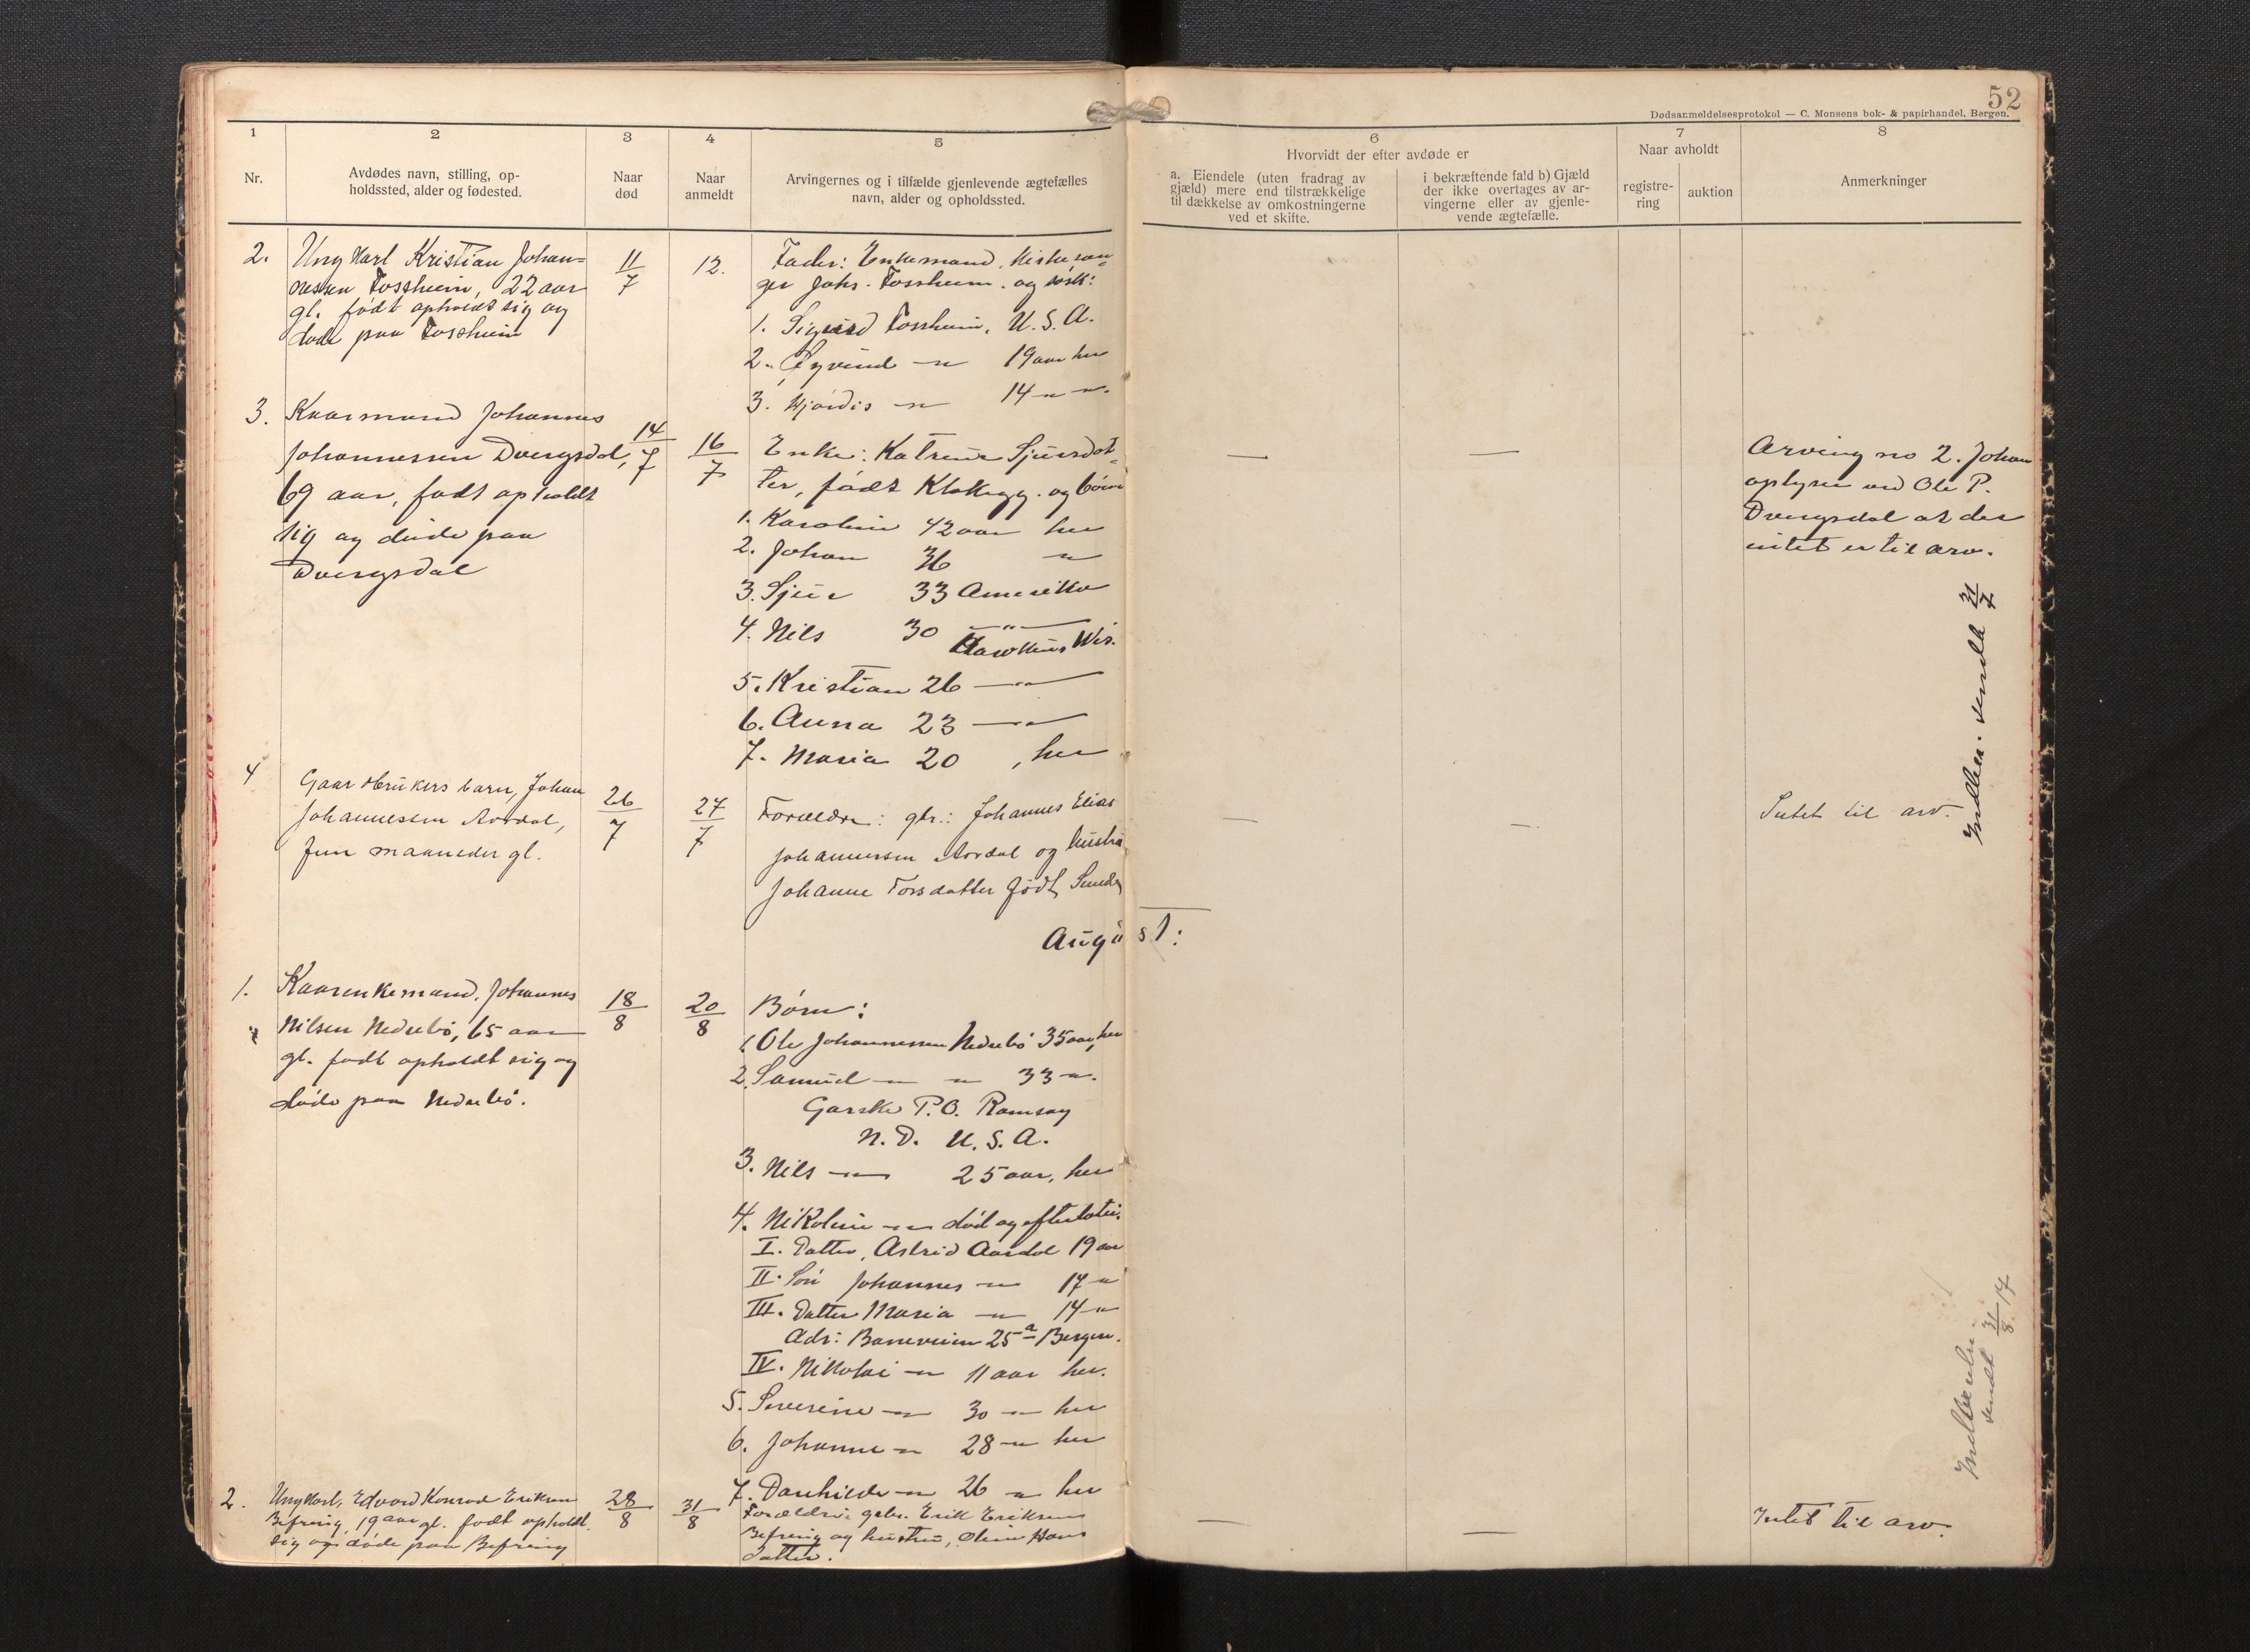 52
Dødsanmeldelsesprotokol — C. Monsens bok- & papirhandel, Bergen.
1
2
3
4
5
6
7
8
Nr.
Avdødes navn, stilling, op-
holdssted, alder og fødested.
Naar
død
Naar
anmeldt
Arvingernes og i tilfælde gjenlevende ægtefælles
navn, alder og opholdssted.
Hvorvidt der efter avdøde er
a. Eiendele (uten fradrag av
gjæld) mere end tilstrækkelige
til dækkelse av omkostningerne
ved et skifte.
i bekræftende fald b) Gjæld
der ikke overtages av ar-
vingerne eller av gjenle-
vende ægtefælle.
Naar avholdt
registre-
ring
auktion
Anmerkninger
2.
Ungkarl Kristian Johan=
nessen Fossheim, 22 aar
gl. født opholdt sig og
døde paa Fossheim
11/7
12.
Fader: Enkemand, Kirkesan=
ger Johs. Fossheim. og
1. Sigurd Fossheim, U.S.A.
2. Øyvind —"— 19 aar her
3. Hjørdis —"— 14 " "
3.
Kaarmand Johannes
Johannessen Dvergsdal,
69 aar, født opholdt
sig og døde paa
Dvergsdal
14/7
16/7
Enke: Katrine Sjursdot=
ter, født Klakegg. og børn
1. Karoline 42 aar her
2. Johan 36 "
3. Sjur 33 Amerika
4. Nils 30 —"—
Hawkins Wis.
5. Kristian 26 —"—
6. Anna 23 —"—
7. Maria 20, her
—
—
Arving no 2. Johan
oplyser ved Ole P.
Dvergsdal at der
intet er til arv.
Indber. sendt 31/7
4
Gaardbrukers barn, Johan
Johannessen Årdal,
fem maaneder gl.
26/7
27/7
Forældre: gbr.: Johannes Elias
Johannessen Årdal og hustru
Johanne Torsdatter født
—
—
Intet til arv.
August:
1.
Kaarenkemand, Johannes
Nilsen Nedrebø, 65 aar
gl. født opholdt sig og
døde paa Nedrebø.
18/8
20/8
Børn:
1. Ole Johannessen Nedrebø 35 aar, her
2. Samuel —"— —"— 33 —"—.
Garske P.O. Ramsay
N.D. U.S.A.
3. Nils —"— 25 aar, her
4. Nikoline —"— død og efterlater.
I. Datter, Astrid Aardal 19 aar
II. Søn Johannes —"— 17 "
III. Datter Maria —"— 14 "
Adr: Baneveien 25 a Bergen.
IV. Nikolai —"— 11 aar her.
5. Severine —"— 30 —"— her
6. Johanne —"— 28 —"— her
7. Danhilde —"— 26 —"— her
Indberetn.
sendt 31/8 17
2.
Ungkarl, Edvard Konrad Eriksen
Befring, 19 aar gl. født opholdt
sig og døde paa Befring
28/8
31/8
Forældre: gbr. Erik Eriksen
Befring og hustru, Oline Hans
datter.
—
—
Intet til arv.